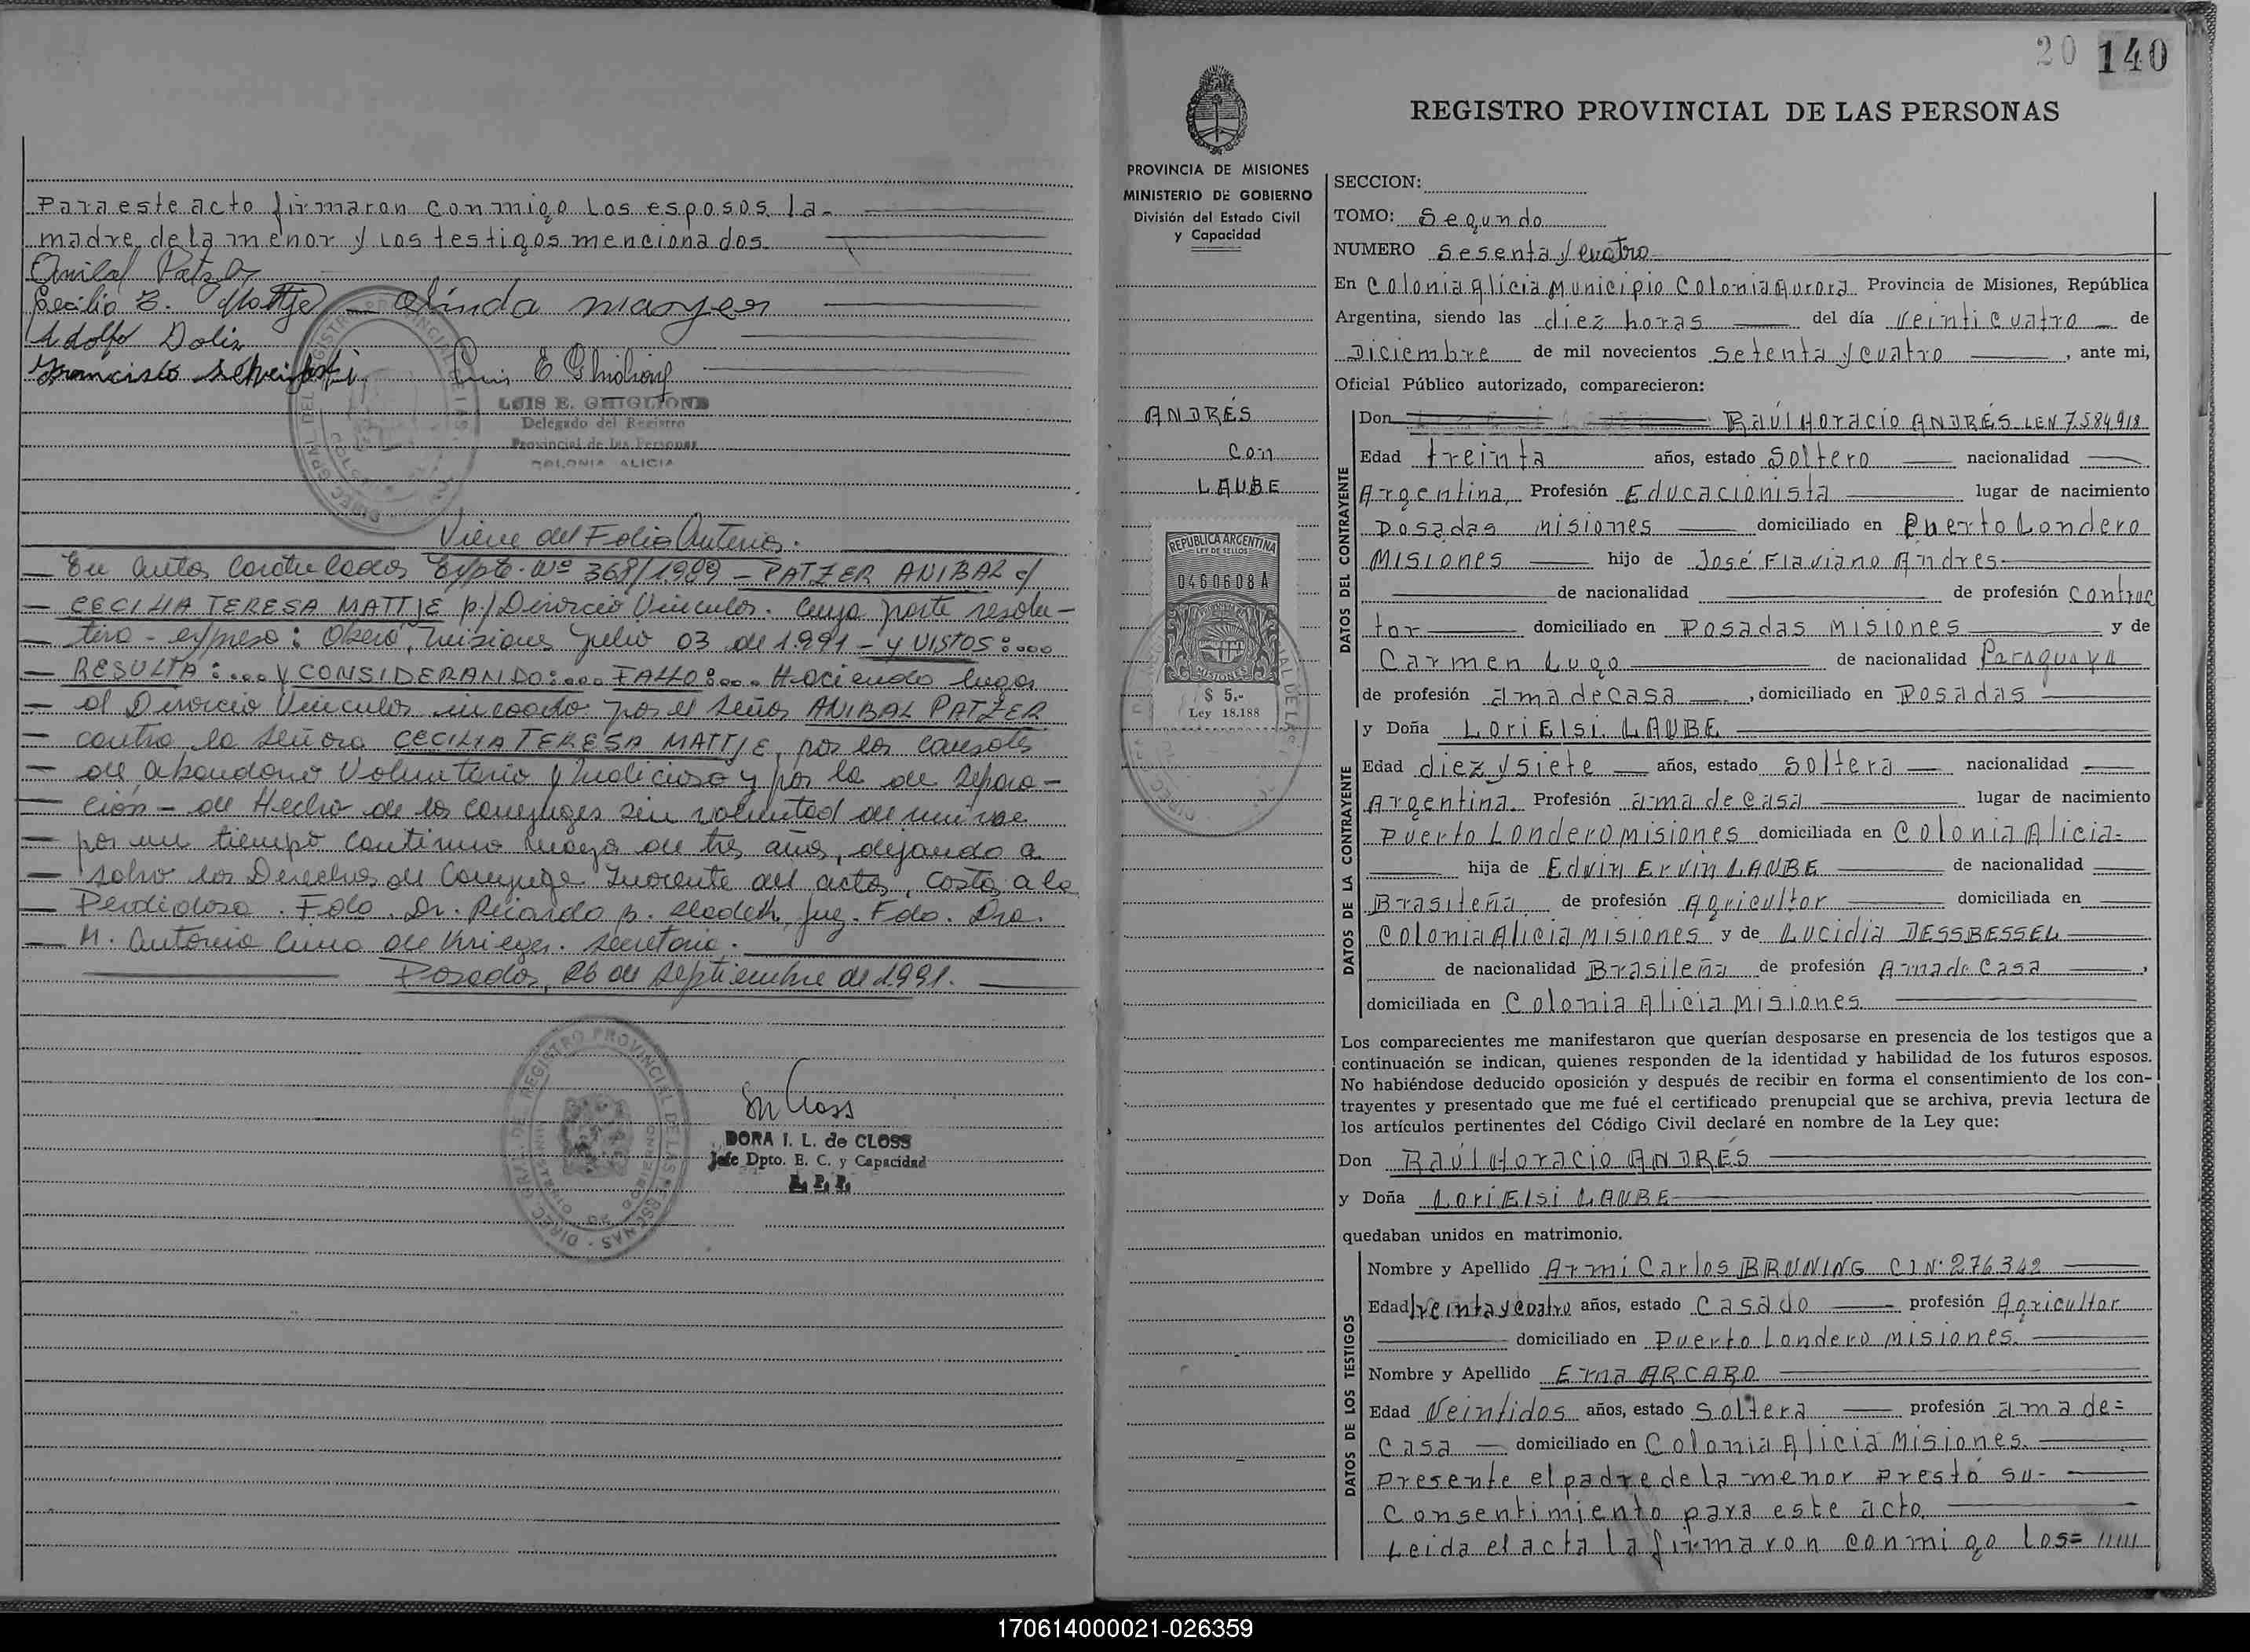 Para este acto firmaron conmigo los esposos la
madre de la menor y los testigos mencionados
Anibal Patzer
Cecilia T. Mattje Olinda
Adolfo Dolis
Francisco
Luis E Ghiglione
LUIS E. GHIGLIONE
Delegado del Registro
Provincial de las Personas
COLONIA ALICIA
Viene del Folio Anterior.
En autos Caratulados Expte. Nº 368/1989 - PATZER ANIBAL c/
CECILIA TERESA MATTJE p/ Divorcio Vincular. Cuya parte resolu-
tiva - expresa: Oberá, Misiones Julio 03 de 1.991 - Y VISTOS:...
RESULTA:... Y CONSIDERANDO:... FALLO:... Haciendo lugar
al Divorcio Vincular incoado por el Señor ANIBAL PATZER
contra la señora CECILIA TERESA MATTJE, por las causales
de abandono Voluntario y Malicioso y por la de Separa-
ción - de Hecho de los conyuges sin voluntad de unirse
por un tiempo continuo mayor de tres años, dejando a
salvo los Derechos de Conyuge Inocente del actor, Costas a la
Perdidosa. Fdo. Dr. Ricardo Juez. Fdo. Dra.
M. Antonia de Krieger. Secretaria.
Posadas, 26 de Septiembre de 1991.
DORA I. L. de CLOSS
Jefe Dpto. E. C. y Capacidad
R. P. P.
20 140
REGISTRO PROVINCIAL DE LAS PERSONAS
PROVINCIA DE MISIONES
MINISTERIO DE GOBIERNO
División del Estado Civil
y Capacidad
ANDRÉS
con
LAUBE
REPUBLICA ARGENTINA
LEY DE SELLOS
0460608A
MISIONES
$ 5,-
Ley 18.188
SECCION:
TOMO: Segundo
NUMERO sesenta y cuatro
En Colonia Alicia Municipio Colonia Aurora Provincia de Misiones, República
Argentina, siendo las diez horas del día veinticuatro de
Diciembre de mil novecientos setenta y cuatro, ante mi,
Oficial Público autorizado, comparecieron:
DATOS DEL CONTRAYENTE
Don Raúl Horacio ANDRÉS LEN 7.584918
Edad treinta años, estado soltero nacionalidad
Argentina, Profesión Educacionista lugar de nacimiento
Posadas misiones domiciliado en Puerto Londero
MISIONES hijo de José Flaviano Andres
de nacionalidad de profesión contruc
tor domiciliado en Posadas Misiones y de
Carmen Lugo de nacionalidad Paraguaya
de profesión ama de casa, domiciliado en Posadas
DATOS DE LA CONTRAYENTE
y Doña Lori Elsi LAUBE
Edad diez y siete años, estado soltera nacionalidad
Argentina. Profesión ama de casa lugar de nacimiento
Puerto Londero misiones domiciliada en Colonia Alicia=
hija de Edvin Ervin LAUBE de nacionalidad
Brasileña de profesión Agricultor domiciliada en
Colonia Alicia Misiones y de Lucidia DESSBESSEL
de nacionalidad Brasileña de profesión Ama de Casa,
domiciliada en Colonia Alicia Misiones
Los comparecientes me manifestaron que querían desposarse en presencia de los testigos que a
continuación se indican, quienes responden de la identidad y habilidad de los futuros esposos.
No habiéndose deducido oposición y después de recibir en forma el consentimiento de los con-
trayentes y presentado que me fué el certificado prenupcial que se archiva, previa lectura de
los artículos pertinentes del Código Civil declaré en nombre de la Ley que:
Don Raúl Horacio ANDRÉS
y Doña Lori Elsi LAUBE
quedaban unidos en matrimonio.
DATOS DE LOS TESTIGOS
Nombre y Apellido Armi Carlos BRUNING CIN·276.342
Edad treinta y cuatro años, estado casado profesión Agricultor
domiciliado en Puerto Londero Misiones
Nombre y Apellido Erna ARCARO
Edad veintidos años, estado soltera profesión ama de=
casa domiciliado en Colonia Alicia Misiones.
Presente el padre de la menor prestó su-
consentimiento para este acto.
Leida el acta la firmaron conmigo los=
170614000021-026359